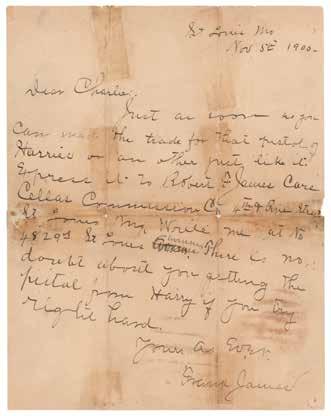 St Louis Mo
Nov 5th 1900-
Dear Charley:
Just as soon as you
can make the trade for that pistol of
Harries or an other just like it
Express it to Robert F James Care
Cellar Commission Co 4th & Pine Street
St Louis Mo, Write me at No
4829 St Louis There is no
doubt about you getting the
pistal from Harry if you try
right hard.
Yours as Ever.
Frank James